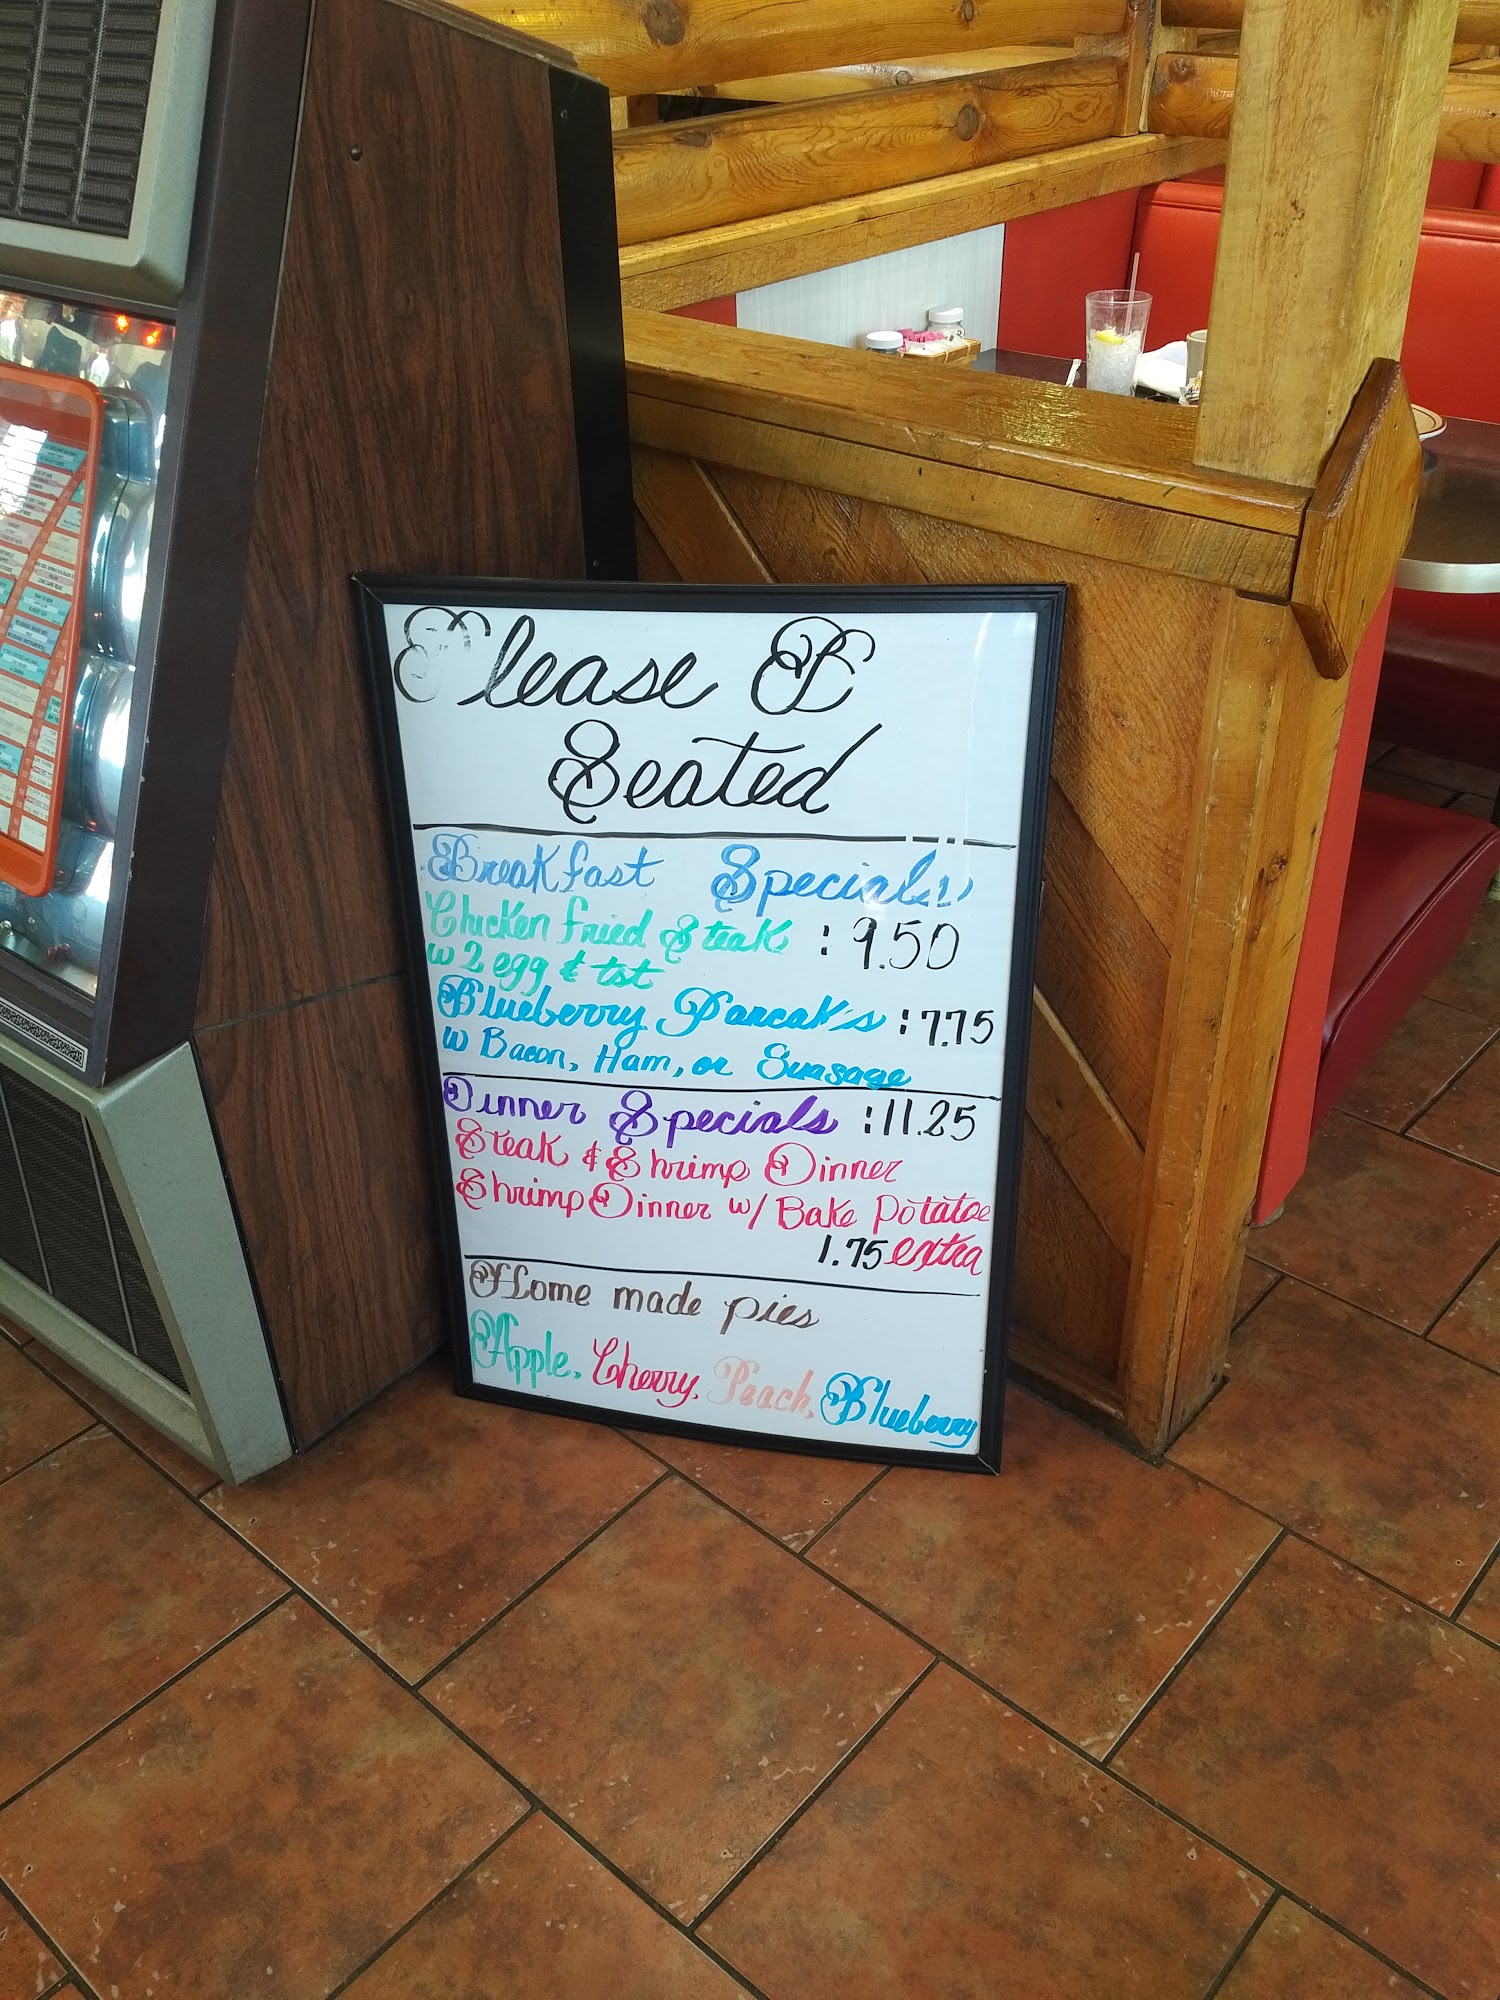 Please B
Seated
Breakfast Specials
Chicken fried Steak : 9.50
w 2 egg & tst
Blueberry Pancak's : 7.75
w Bacon, Ham, or Suasage
Dinner Specials : 11.25
Steak & Shrimp Dinner
Shrimp Dinner w/ Bake Potatoe
1.75 extra
Home made pies
Apple, Cherry, Peach, Blueberry